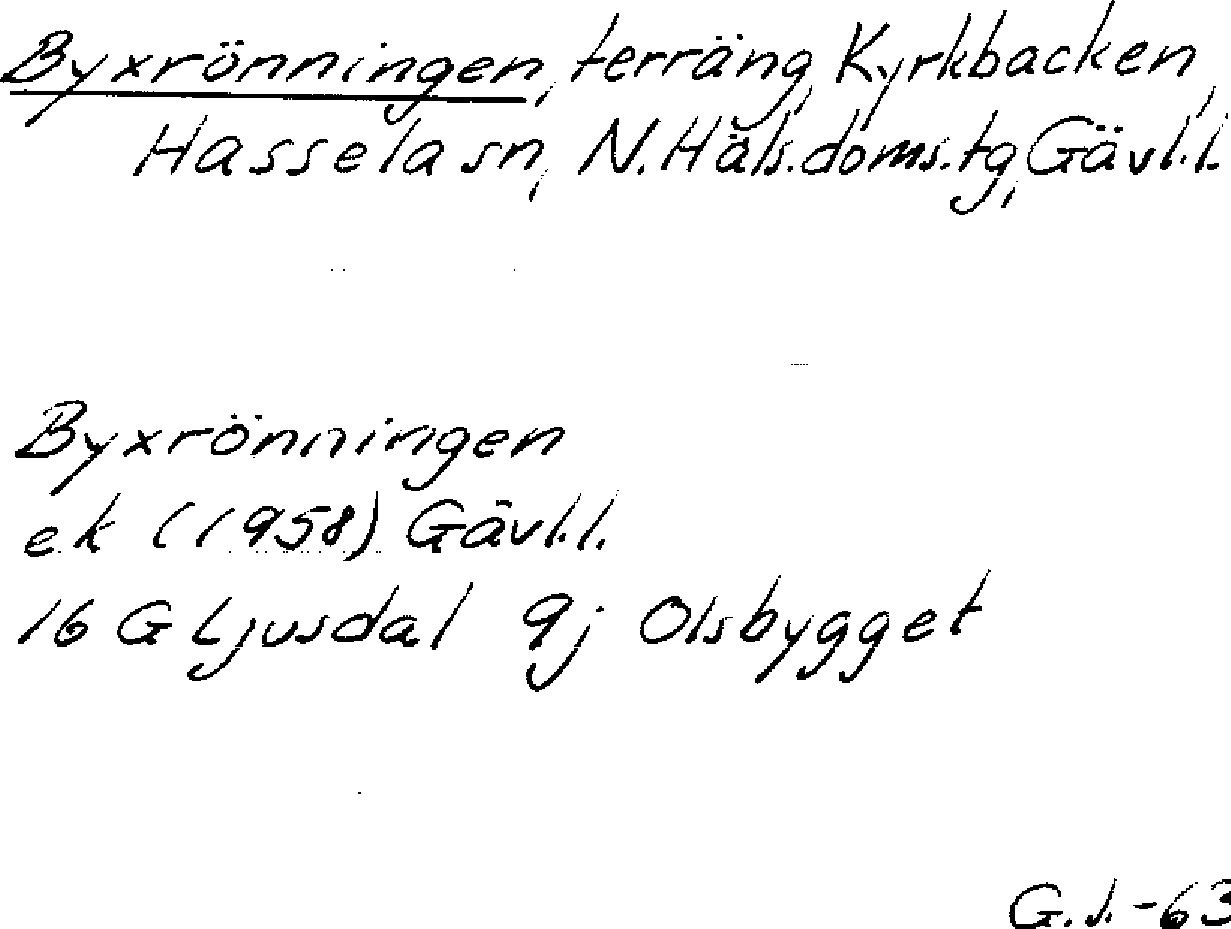 Byxrönningen, terräng, Kyrkbacken,
Hassela sn, N. Häls. doms. tg, Gävl. l.
Byxrönningen
ek (1958) Gävl. l.
16 G Ljusdal 9j Olsbygget
G. J. -63